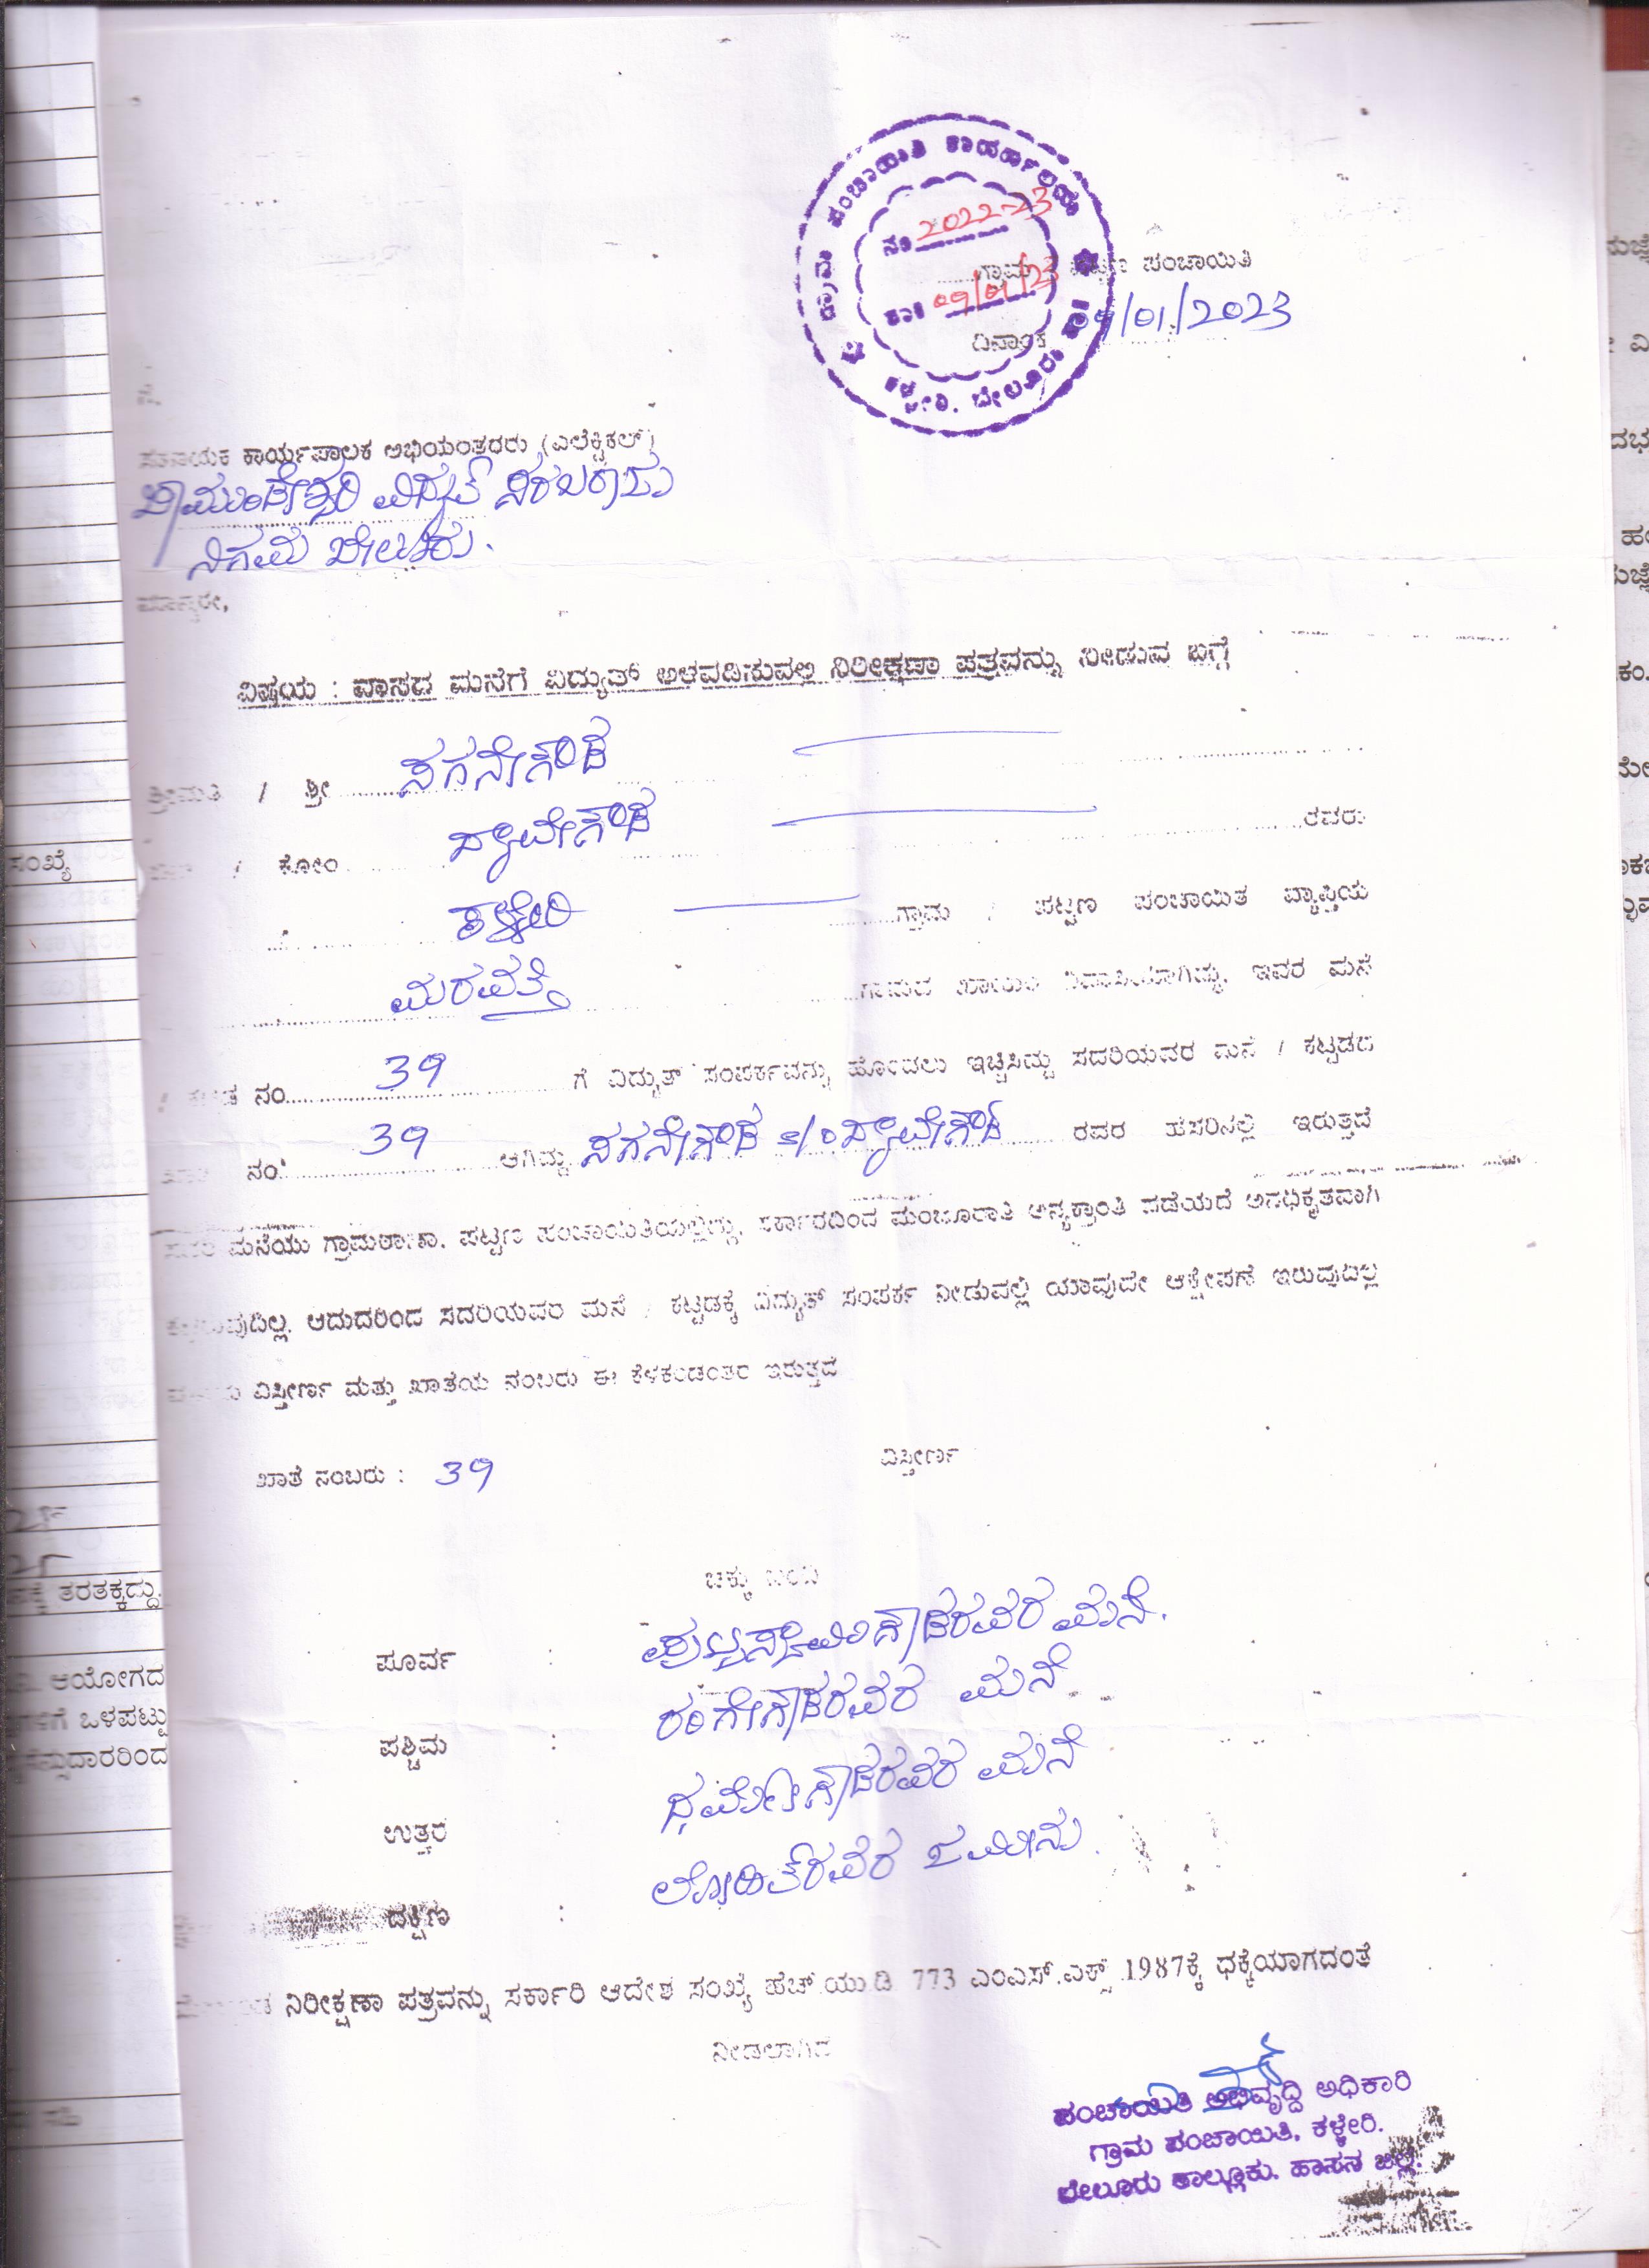 ಗ್ರಾಮ ಪಂಚಾಯಿತಿ ಕಾರ್ಯಾಲಯ
ನಂ 2022-23
ತಾ: 09/01/23
ಕಳ್ಳೇರಿ. ಬೇಲೂರು ತಾ||
ಗ್ರಾಮ ಪಂಚಾಯಿತಿ
ದಿನಾಂಕ 09/01/2023
ಗೆ,
ಸಹಾಯಕ ಕಾರ್ಯಪಾಲಕ ಅಭಿಯಂತರರು (ಎಲೆಕ್ಟ್ರಿಕಲ್)
ಚಾಮುಂಡೇಶ್ವರಿ ವಿದ್ಯುತ್ ಸರಬರಾಜು
ನಿಗಮ ಬೇಲೂರು.
ಮಾನ್ಯರೇ,
ವಿಷಯ : ವಾಸದ ಮನೆಗೆ ವಿದ್ಯುತ್ ಅಳವಡಿಸುವಲ್ಲಿ ನಿರೀಕ್ಷಣಾ ಪತ್ರವನ್ನು ನೀಡುವ ಬಗ್ಗೆ
ಶ್ರೀಮತಿ / ಶ್ರೀ ನಗನೇಗೌಡ
/ ಕೋಂ ದ್ಯಾವೇಗೌಡ ರವರು
ಕಳ್ಳೇರಿ ಗ್ರಾಮ / ಪಟ್ಟಣ ಪಂಚಾಯಿತ ವ್ಯಾಪ್ತಿಯ
ಮರವತ್ತೆ ಗ್ರಾಮದ ಖಾಯಂ ನಿವಾಸಿಯಾಗಿದ್ದು, ಇವರ ಮನೆ
ನಂ 39 ಗೆ ವಿದ್ಯುತ್ ಸಂಪರ್ಕವನ್ನು ಹೊಂದಲು ಇಚ್ಛಿಸಿದ್ದು ಸದರಿಯವರ ಮನೆ / ಕಟ್ಟಡದ
ಖಾತೆ ನಂ 39 ಆಗಿದ್ದು ನಗನೇಗೌಡ s/o ದ್ಯಾವೇಗೌಡ ರವರ ಹೆಸರಿನಲ್ಲಿ ಇರುತ್ತದೆ
ಮನೆಯು ಗ್ರಾಮಠಾಣಾ, ಪಟ್ಟಣ ಪಂಚಾಯಿತಿಯಲ್ಲಿದ್ದು, ಸರ್ಕಾರದಿಂದ ಮಂಜೂರಾತಿ ಅನ್ಯಕ್ರಾಂತಿ ಪಡೆಯದೆ ಅನಧಿಕೃತವಾಗಿ
ಆದುದರಿಂದ ಸದರಿಯವರ ಮನೆ / ಕಟ್ಟಡಕ್ಕೆ ವಿದ್ಯುತ್ ಸಂಪರ್ಕ ನೀಡುವಲ್ಲಿ ಯಾವುದೇ ಆಕ್ಷೇಪಣೆ ಇರುವುದಿಲ್ಲ
ವಿಸ್ತೀರ್ಣ ಮತ್ತು ಖಾತೆಯ ನಂಬರು ಈ ಕೆಳಕಂಡಂತೆ ಇರುತ್ತದೆ
ಖಾತೆ ನಂಬರು : 39 ವಿಸ್ತೀರ್ಣ
ಚಕ್ಕು ಬಂದಿ
ಪೂರ್ವ : ಪುಟ್ಟಸ್ವಾಮಿಗೌಡರವರ ಮನೆ.
ಪಶ್ಚಿಮ : ರಂಗೇಗೌಡರವರ ಮನೆ
ಉತ್ತರ : ಧರ್ಮೇಗೌಡರವರ ಮನೆ
ದಕ್ಷಿಣ : ಲೋಹಿತ್‌ರವರ ಜಮೀನು.
ನಿರೀಕ್ಷಣಾ ಪತ್ರವನ್ನು ಸರ್ಕಾರಿ ಆದೇಶ ಸಂಖ್ಯೆ ಹೆಚ್.ಯು.ಡಿ. 773 ಎಂಎಸ್.ಎಕ್ಸ್ 1987ಕ್ಕೆ ಧಕ್ಕೆಯಾಗದಂತೆ
ನೀಡಲಾಗಿದೆ
ಪಂಚಾಯಿತಿ ಅಭಿವೃದ್ಧಿ ಅಧಿಕಾರಿ
ಗ್ರಾಮ ಪಂಚಾಯಿತಿ, ಕಳ್ಳೇರಿ.
ಬೇಲೂರು ತಾಲ್ಲೂಕು. ಹಾಸನ ಜಿಲ್ಲೆ.
ಸಂಖ್ಯೆ
ತರತಕ್ಕದ್ದು.
ಆಯೋಗದ
ಒಳಪಟ್ಟು